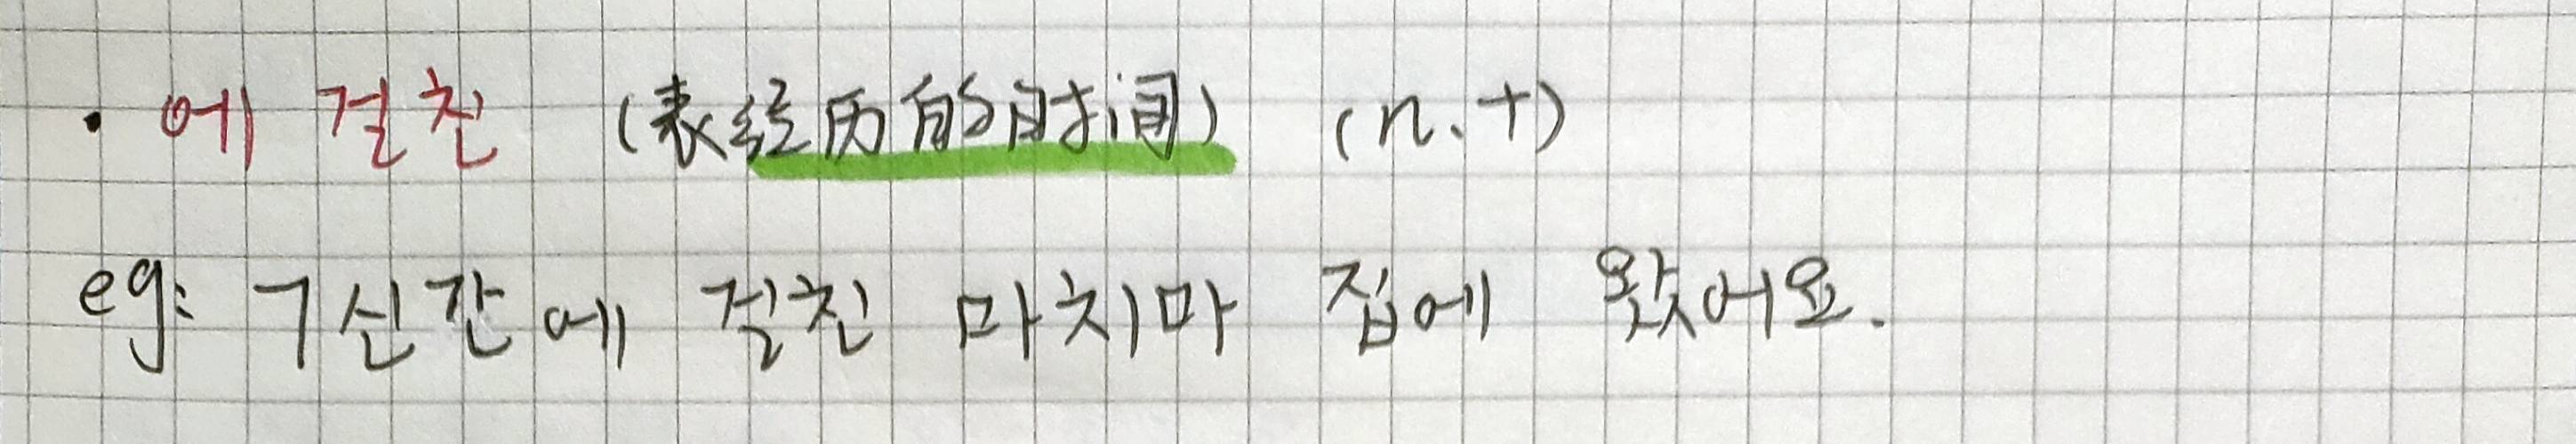 · 에 걸친 (表经历的时间) (n.+)
eg: 7신간에 걸친 마치마 집에 왔어요.